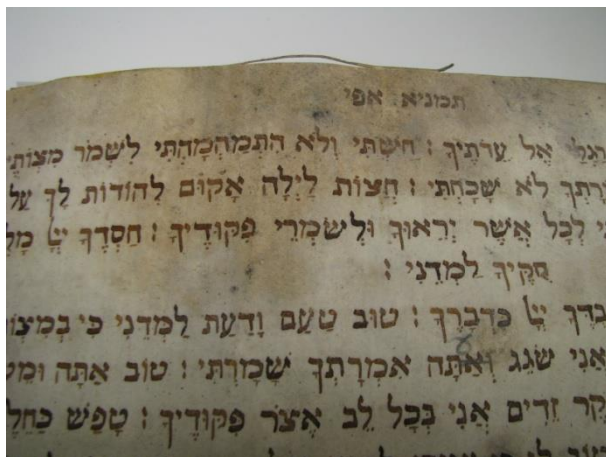 תמניא אפי
אֶל עֵדֹתֶיךָ : חַשְׁתִּי וְלֹא הִתְמַהְמָהְתִּי לִשְׁמֹר מִצְוֹתֶי
רָתְךָ לֹא שָׁכָחְתִּי : חֲצוֹת לַיְלָה אָקוּם לְהוֹדוֹת לָךְ עַל
לְכָל אֲשֶׁר יְרֵאוּךָ וּלְשֹׁמְרֵי פִּקּוּדֶיךָ : חַסְדְּךָ יְיָ מָל
חֻקֶּיךָ לַמְּדֵנִי :
בְדְּךָ יְיָ כִּדְבָרֶךָ : טוּב טַעַם וָדַעַת לַמְּדֵנִי כִּי בְמִיצְוֹ
אֲנִי שֹׁגֵג וְאַתָּה אִמְרָתְךָ שָׁמָרְתִּי : טוֹב אַתָּה וּמֵט
קֶר זֵדִים אֲנִי בְּכָל לֵב אֶצֹּר פִּקּוּדֶיךָ : טָפַשׁ כַּחֵל